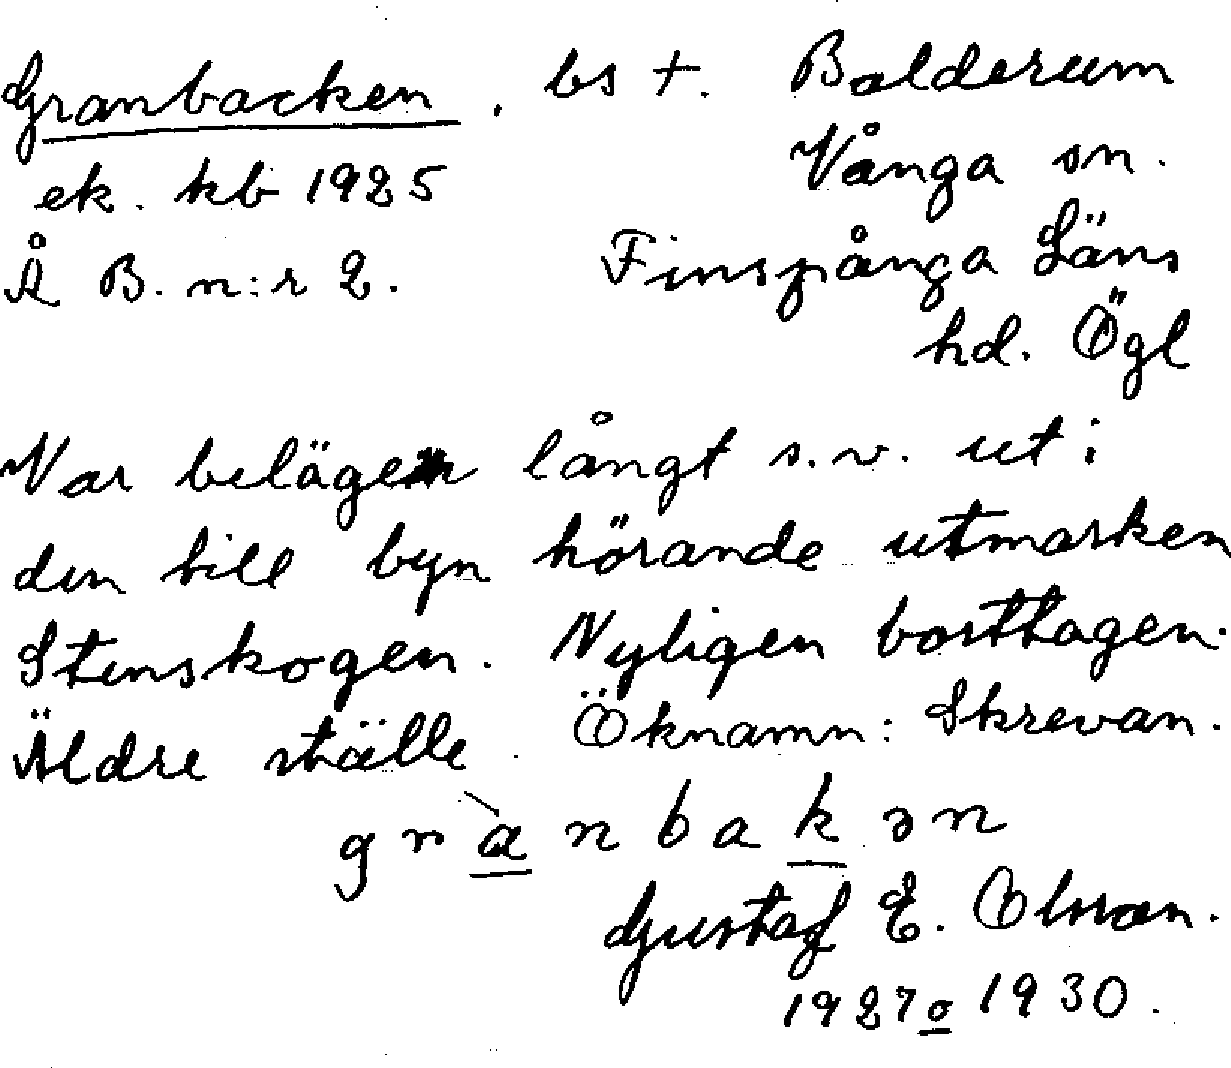 Granbacken, bs †. Bolderum
ek. kb 1925 Vånga sn.
Å B. n:r 2. Finspånga Läns
hd. Ögl
Var belägen långt s.v. ut i
den till byn hörande utmarken
Stenskogen. Nyligen borttagen.
Äldre ställe. Öknamn: Skrevan.
grànbakən
Gustaf E. Olsson.
1927 o 1930.